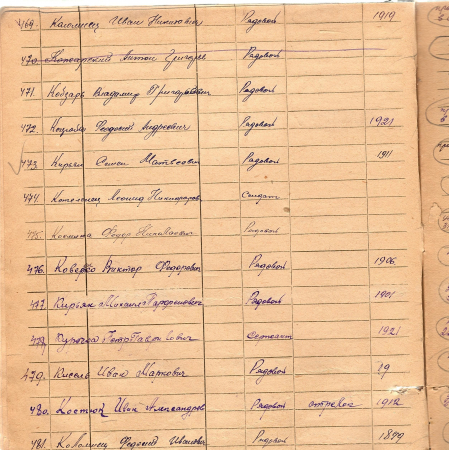 469. Коломиец Иван Никитович Рядовой 1919
470. Антон Григорьев Рядовой
471. Кобзарь Владимир Григорьевич Рядовой
472. Феодосий Андреевич Рядовой 1921
473. Семен Матвеевич Рядовой 1911
474. Леонид Никифоров Солдат
475. Федор Николаевич Рядовой
476. Коверко Виктор Федорович Рядовой 1906
477. Кирьян Михаил Парфенович Рядовой 1901
478. Петр Павлович Сержант 1921
479. Кисель Иван Маркович Рядовой 19
480. Костюк Иван Александров Рядовой 1912
481. Коломиец Федосий Иванович Рядовой 1899